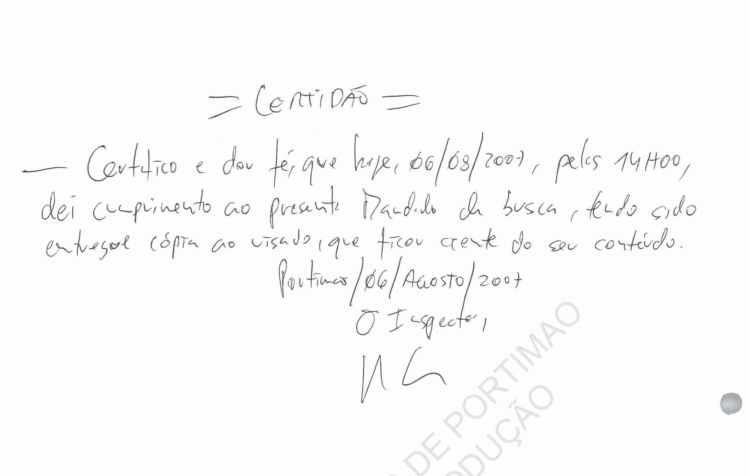 = CERTIDÃO =
— Certifico e dou fé, que hoje, 06/08/2007, pelas 14H00,
dei cumprimento ao presente Mandado de busca, tendo sido
entregue cópia ao visado, que ficou ciente do seu conteúdo.
Portimão/06/AGOSTO/2007
O Inspector,
DE PORTIMAO
DUÇÃO